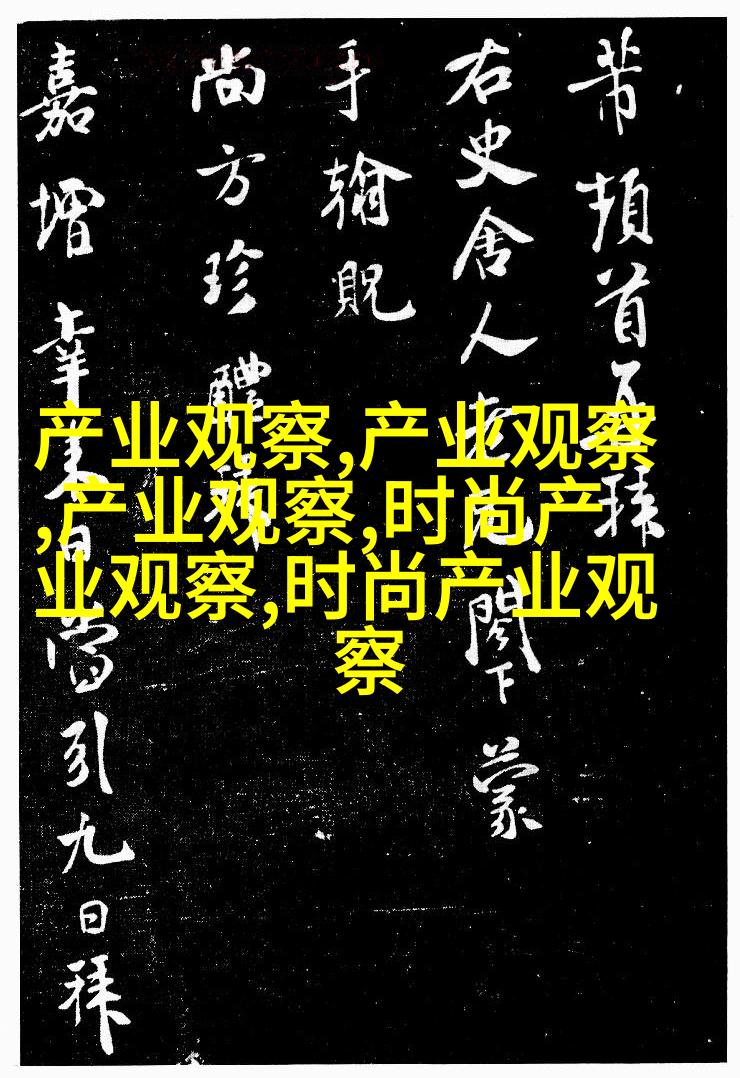 芾頓首再拜
右史舍人老兄閤下蒙
手翰貺
尚方珍醴
嘉增幸日當引九日拜
产业观察,产业观察
,产业观察,时尚产
业观察,时尚产业观
察